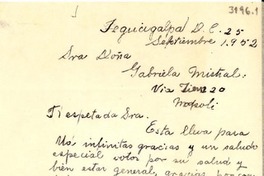 3196.1
Tegucigalpa D. C. 25
Septiembre 1952
Sra Doña
Gabriela Mistral.
Via
Napoli
Respetada Sra.
Esta lleva para
Ud infinitas gracias y un saludo
especial votos por su salud y
bien estar general, gracias por